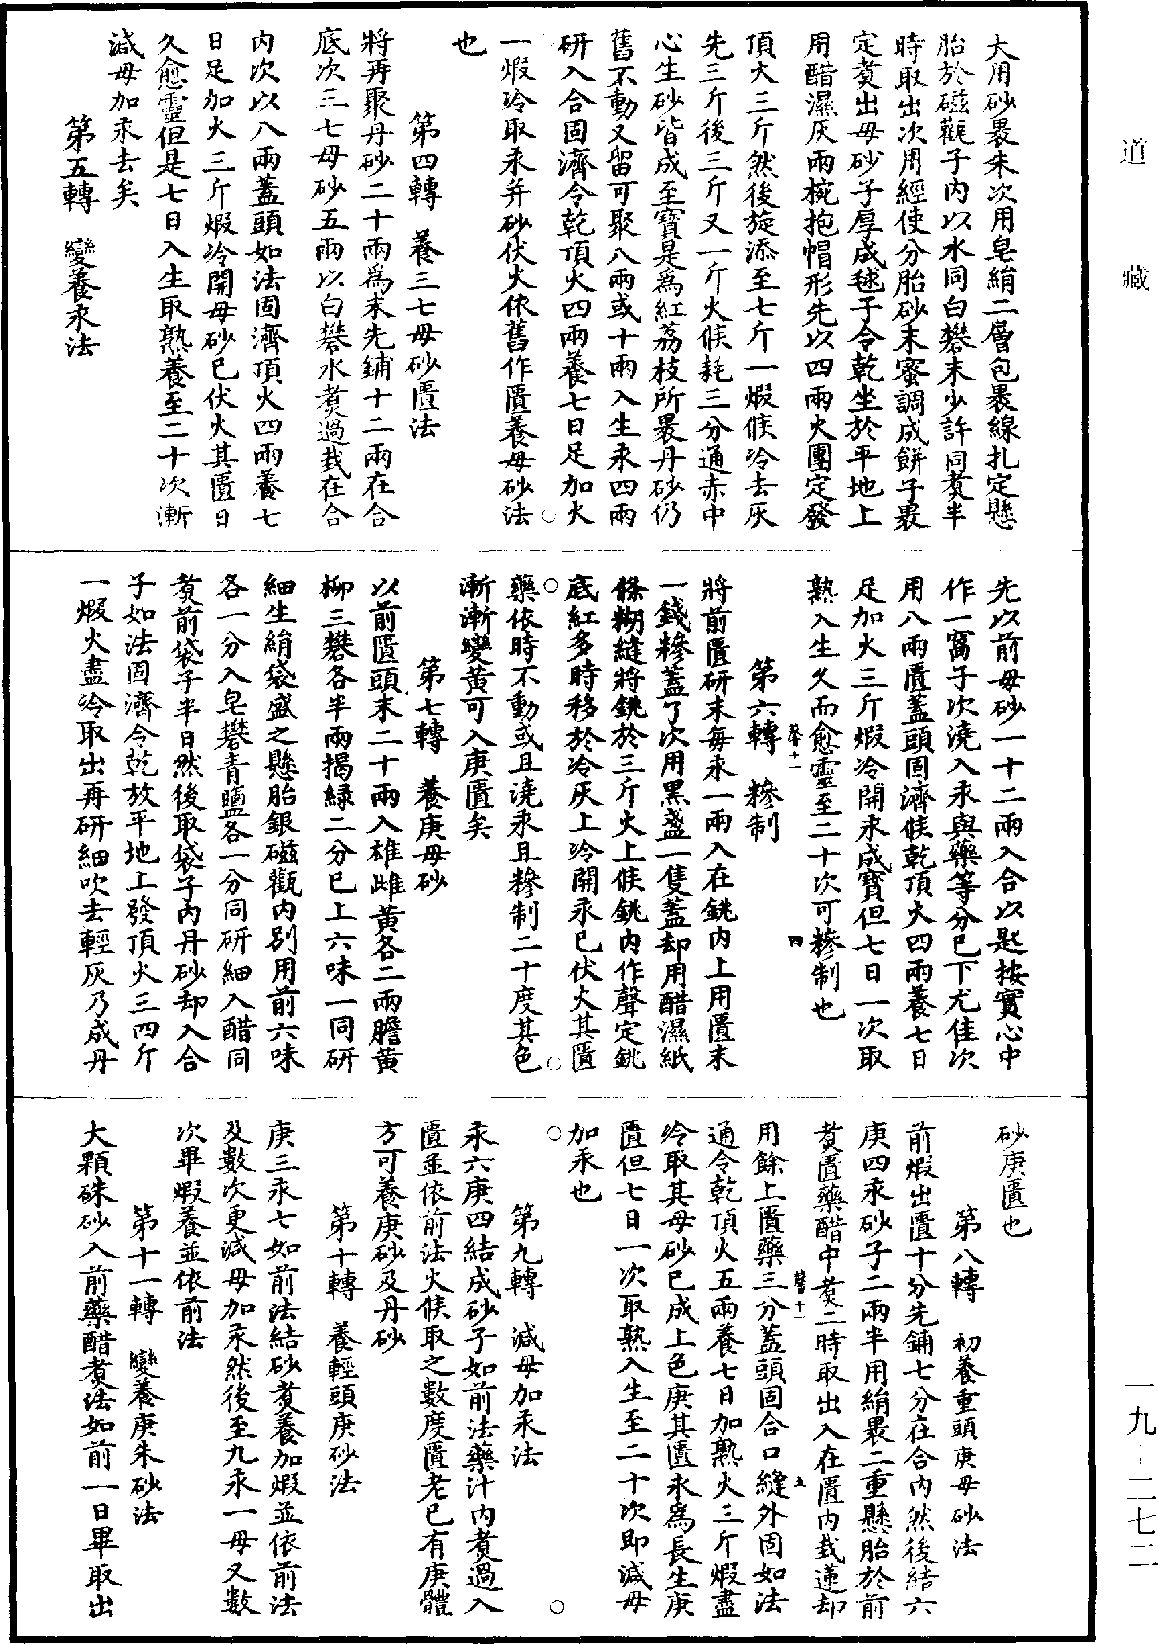 道藏
大用砂裹朱次用皂絹二層包裹線扎定懸
胎於磁觀子內以水同白礬末少許同煑半
時取出次用經使分胎砂末蜜調成餅子裹
定煑出母砂子厚成毬子令乾坐於平地上
用醋濕灰兩椀抱帽形先以四兩火團定發
頂大三斤然後旋添至七斤一煆候冷去灰
先三斤後三斤又一斤火候耗三分通赤中
心生砂皆成至寶是爲紅荔枝所裹丹砂仍
舊不動又留可聚八兩或十兩入生汞四兩
研入合固濟令乾頂火四兩養七日足加火
一煆冷取汞并砂伏火依舊作匱養母砂法
也
第四轉　養三七母砂匱法
將再聚丹砂二十兩爲末先鋪十二兩在合
底次三七母砂五兩以白礬水煑過栽在合
內次以八兩蓋頭如法固濟頂火四兩養七
日足加火三斤煆冷開母砂已伏火其匱日
久愈靈但是七日入生取熟養至二十次漸
減母加汞去矣
第五轉　變養汞法
先以前母砂一十二兩入合以匙按實心中
作一窩子次澆入汞與藥等分已下尤佳次
用八兩匱蓋頭固濟候乾頂火四兩養七日
足加火三斤煆冷開汞成寶但七日一次取
熟入生久而愈靈至二十次可糝制也
第六轉　糝制
將前匱研末每汞一兩入在銚內上用匱末
一錢糝蓋了次用黑盞一隻蓋却用醋濕紙
條糊縫將銚於三斤火上候銚內作聲定銚
底紅多時移於冷灰上冷開汞已伏火其匱
藥依時不動或且澆汞且糝制二十度其色
漸漸變黃可入庚匱矣
第七轉　養庚母砂
以前匱頭末二十兩入雄雌黃各二兩膽黃
柳三礬各半兩揭綠二分已上六味一同研
細生絹袋盛之懸胎銀磁觀內別用前六味
各一分入皂礬青鹽各一分同研細入醋同
煑前袋子半日然後取袋子內丹砂却入合
子如法固濟令乾放平地上發頂火三四斤
一煆火盡冷取出再研細吹去輕灰乃成丹
砂庚匱也
第八轉　初養重頭庚母砂法
前煆出匱十分先鋪七分在合內然後結六
庚四汞砂子二兩半用絹裹二重懸胎於前
煑匱藥醋中煑二時取出入在匱內栽蓮却
用餘上匱藥三分蓋頭固合口縫外固如法
通令乾頂火五兩養七日加熟火三斤煆盡
冷取其母砂已成上色庚其匱永爲長生庚
匱但七日一次取熟入生至二十次即減母
加汞也
第九轉　減母加汞法
汞六庚四結成砂子如前法藥汁內煑過入
匱並依前法火候取之數度匱老已有庚體
方可養庚砂及丹砂
第十轉　養輕頭庚砂法
庚三汞七如前法結砂煑養加煆並依前法
及數次更減母加汞然後至九汞一母又數
次畢煆養並依前法
第十一轉　變養庚朱砂法
大顆硃砂入前藥醋煑法如前一日畢取出
一九‐二七二